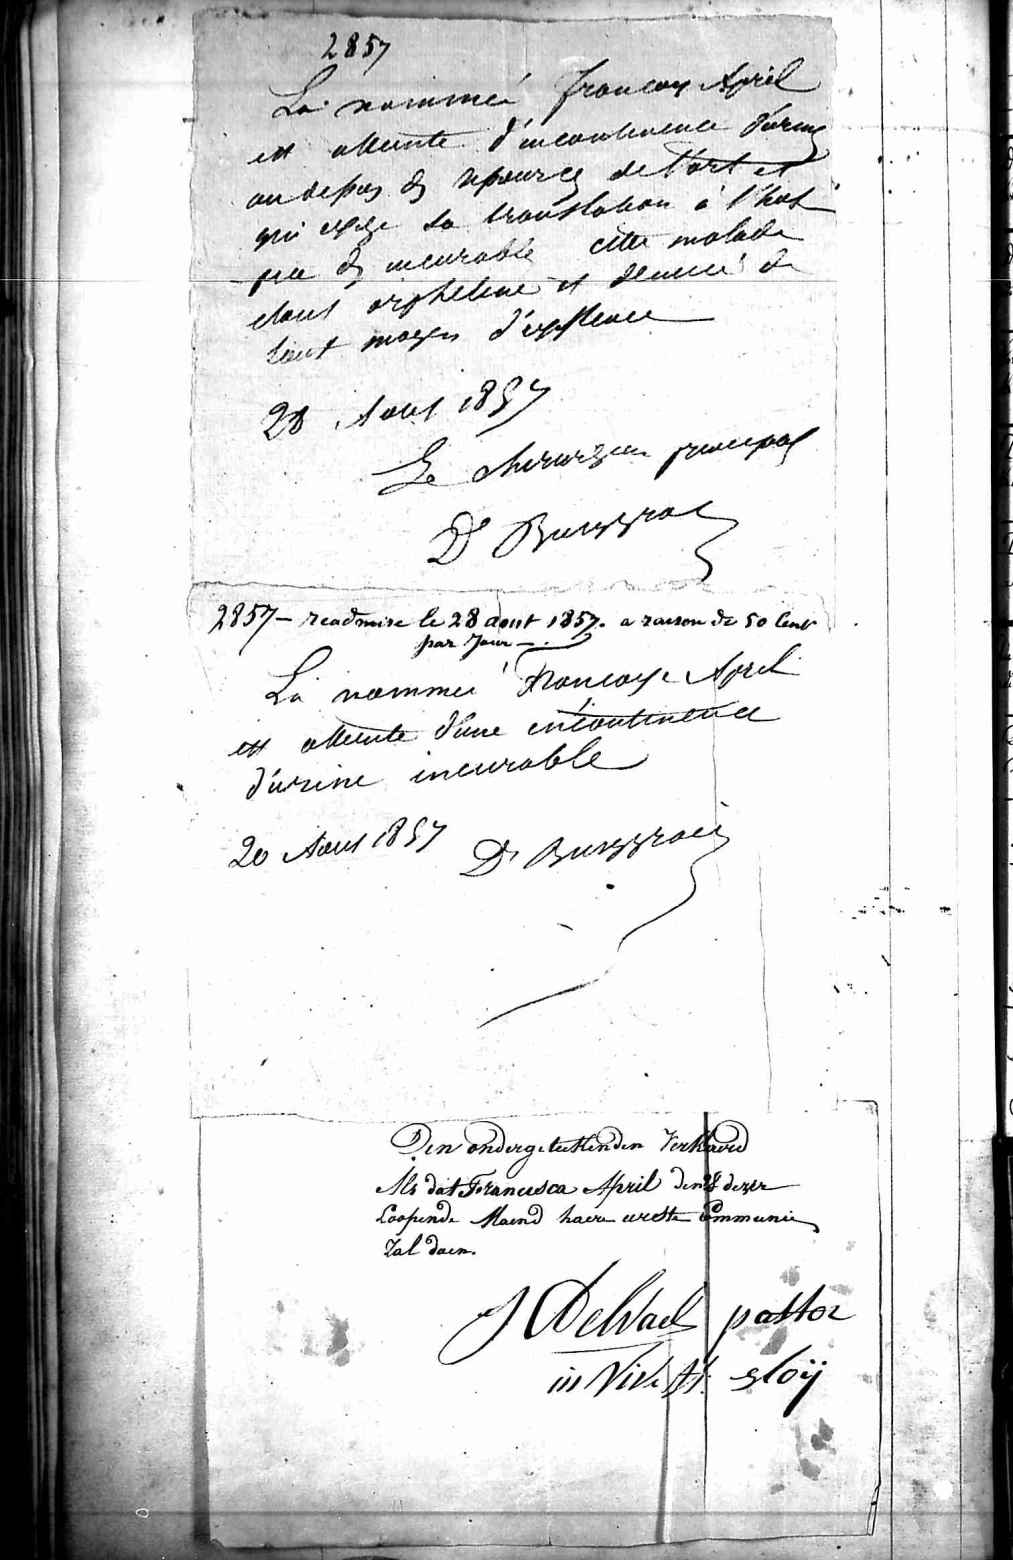 2857
La nommée françoise April
est atteinte d'incontinence d'urine
au depas des ressources de l'art et
qui exige sa translation à l'hos
pice des incurable cette malade
etant orpheline et denuée de
tout moyen d'existence
28 Aout 1857
Le chirurgien principal
Dr Burggraeve
2857 - readmise le 28 aout 1857. a raison de 50 cent
par Jour -.
La nommée Françoise April
est atteinte d'une incontinence
d'urine incurable
20 Aout 1857 Dr Burggraeve
Den ondergeteekenden Verklaerd
Als dat Francisca April den 28 dezer
Loopende Maend haere eerste Communie
Zal doen.
J Delvael pastor
in Vive St. Eloÿ